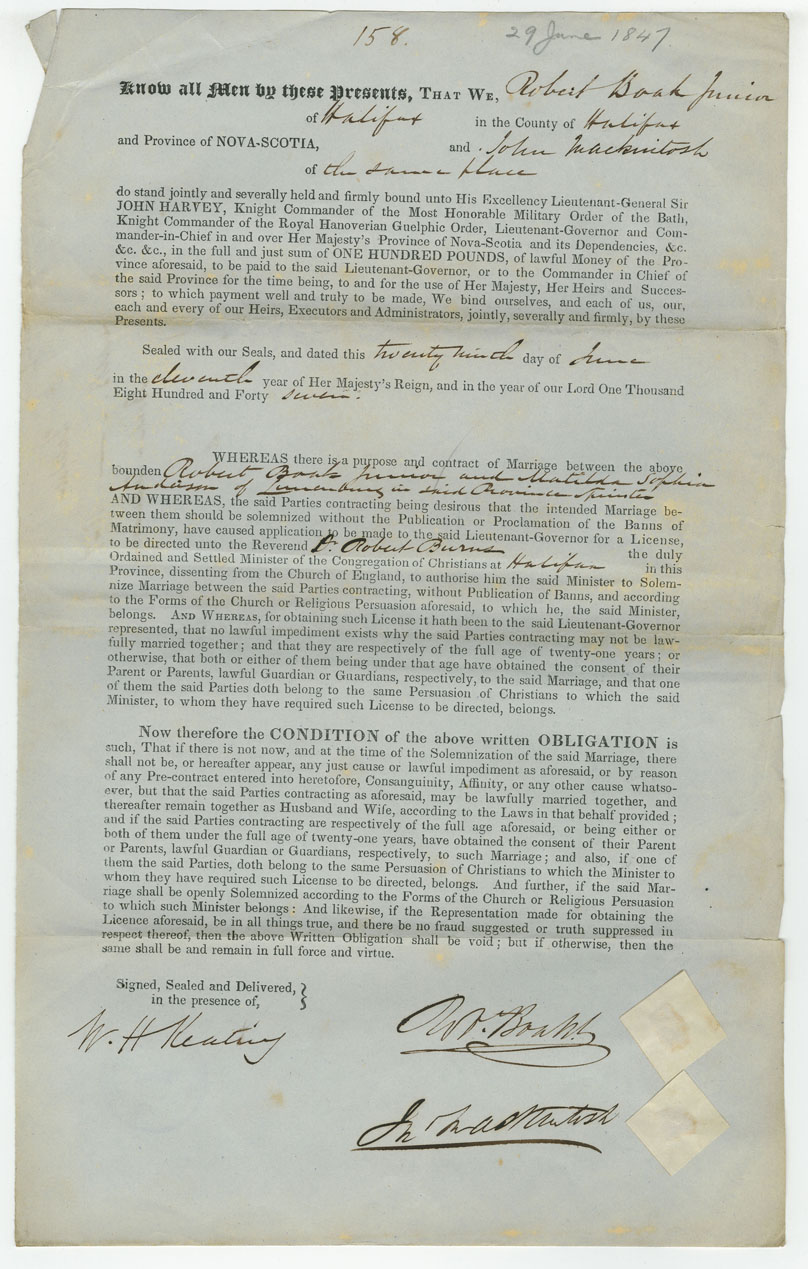 158.
29 June 1847.
Know all Men by these Presents, THAT WE, Robert Boak Junior
of Halifax in the County of Halifax
and Province of NOVA-SCOTIA, and John Mackintosh
of the same place
do stand jointly and severally held and firmly bound unto His Excellency Lieutenant-General Sir
JOHN HARVEY, Knight Commander of the Most Honorable Military Order of the Bath,
Knight Commander of the Royal Hanoverian Guelphic Order, Lieutenant-Governor and Com-
mander-in-Chief in and over Her Majesty's Province of Nova-Scotia and its Dependencies, &c.
&c. &c., in the full and just sum of ONE HUNDRED POUNDS, of lawful Money of the Pro-
vince aforesaid, to be paid to the said Lieutenant-Governor, or to the Commander in Chief of
the said Province for the time being, to and for the use of Her Majesty, Her Heirs and Succes-
sors; to which payment well and truly to be made, We bind ourselves, and each of us, our,
each and every of our Heirs, Executors and Administrators, jointly, severally and firmly, by these
Presents.
Sealed with our Seals, and dated this twenty ninth day of June
in the eleventh year of Her Majesty's Reign, and in the year of our Lord One Thousand
Eight Hundred and Forty seven.
WHEREAS there is a purpose and contract of Marriage between the above
bounden Robert Boak Junior and Matilda Sophia
Anderson of Lunenburg in said Province Spinster
AND WHEREAS, the said Parties contracting being desirous that the intended Marriage be-
tween them should be solemnized without the Publication or Proclamation of the Banns of
Matrimony, have caused application to be made to the said Lieutenant-Governor for a License,
to be directed unto the Reverend Dr. Robert Burns the duly
Ordained and Settled Minister of the Congregation of Christians at Halifax in this
Province, dissenting from the Church of England, to authorise him the said Minister to Solem-
nize Marriage between the said Parties contracting, without Publication of Banns, and according
to the Forms of the Church or Religious Persuasion aforesaid, to which he, the said Minister,
belongs. AND WHEREAS, for obtaining such License it hath been to the said Lieutenant-Governor
represented, that no lawful impediment exists why the said Parties contracting may not be law-
fully married together; and that they are respectively of the full age of twenty-one years; or
otherwise, that both or either of them being under that age have obtained the consent of their
Parent or Parents, lawful Guardian or Guardians, respectively, to the said Marriage, and that one
of them the said Parties doth belong to the same Persuasion of Christians to which the said
Minister, to whom they have required such License to be directed, belongs.
Now therefore the CONDITION of the above written OBLIGATION is
such, That if there is not now, and at the time of the Solemnization of the said Marriage, there
shall not be, or hereafter appear, any just cause or lawful impediment as aforesaid, or by reason
of any Pre-contract entered into heretofore, Consanguinity, Affinity, or any other cause whatso-
ever, but that the said Parties contracting as aforesaid, may be lawfully married together, and
thereafter remain together as Husband and Wife, according to the Laws in that behalf provided;
and if the said Parties contracting are respectively of the full age aforesaid, or being either or
both of them under the full age of twenty-one years, have obtained the consent of their Parent
or Parents, lawful Guardian or Guardians, respectively, to such Marriage; and also, if one of
them the said Parties, doth belong to the same Persuasion of Christians to which the Minister to
whom they have required such License to be directed, belongs. And further, if the said Mar-
riage shall be openly Solemnized according to the Forms of the Church or Religious Persuasion
to which such Minister belongs: And likewise, if the Representation made for obtaining the
Licence aforesaid, be in all things true, and there be no fraud suggested or truth suppressed in
respect thereof, then the above Written Obligation shall be void; but if otherwise, then the
same shall be and remain in full force and virtue.
Signed, Sealed and Delivered,
in the presence of,
W. H Keating
Robt. Boak Jr
Jno Mackintosh